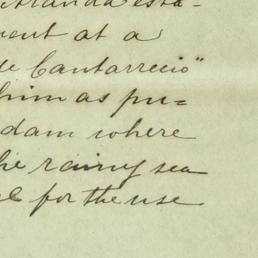 ment at a
de Cantarrecio"
him as pu=
dam where
he rainy sea
for the use